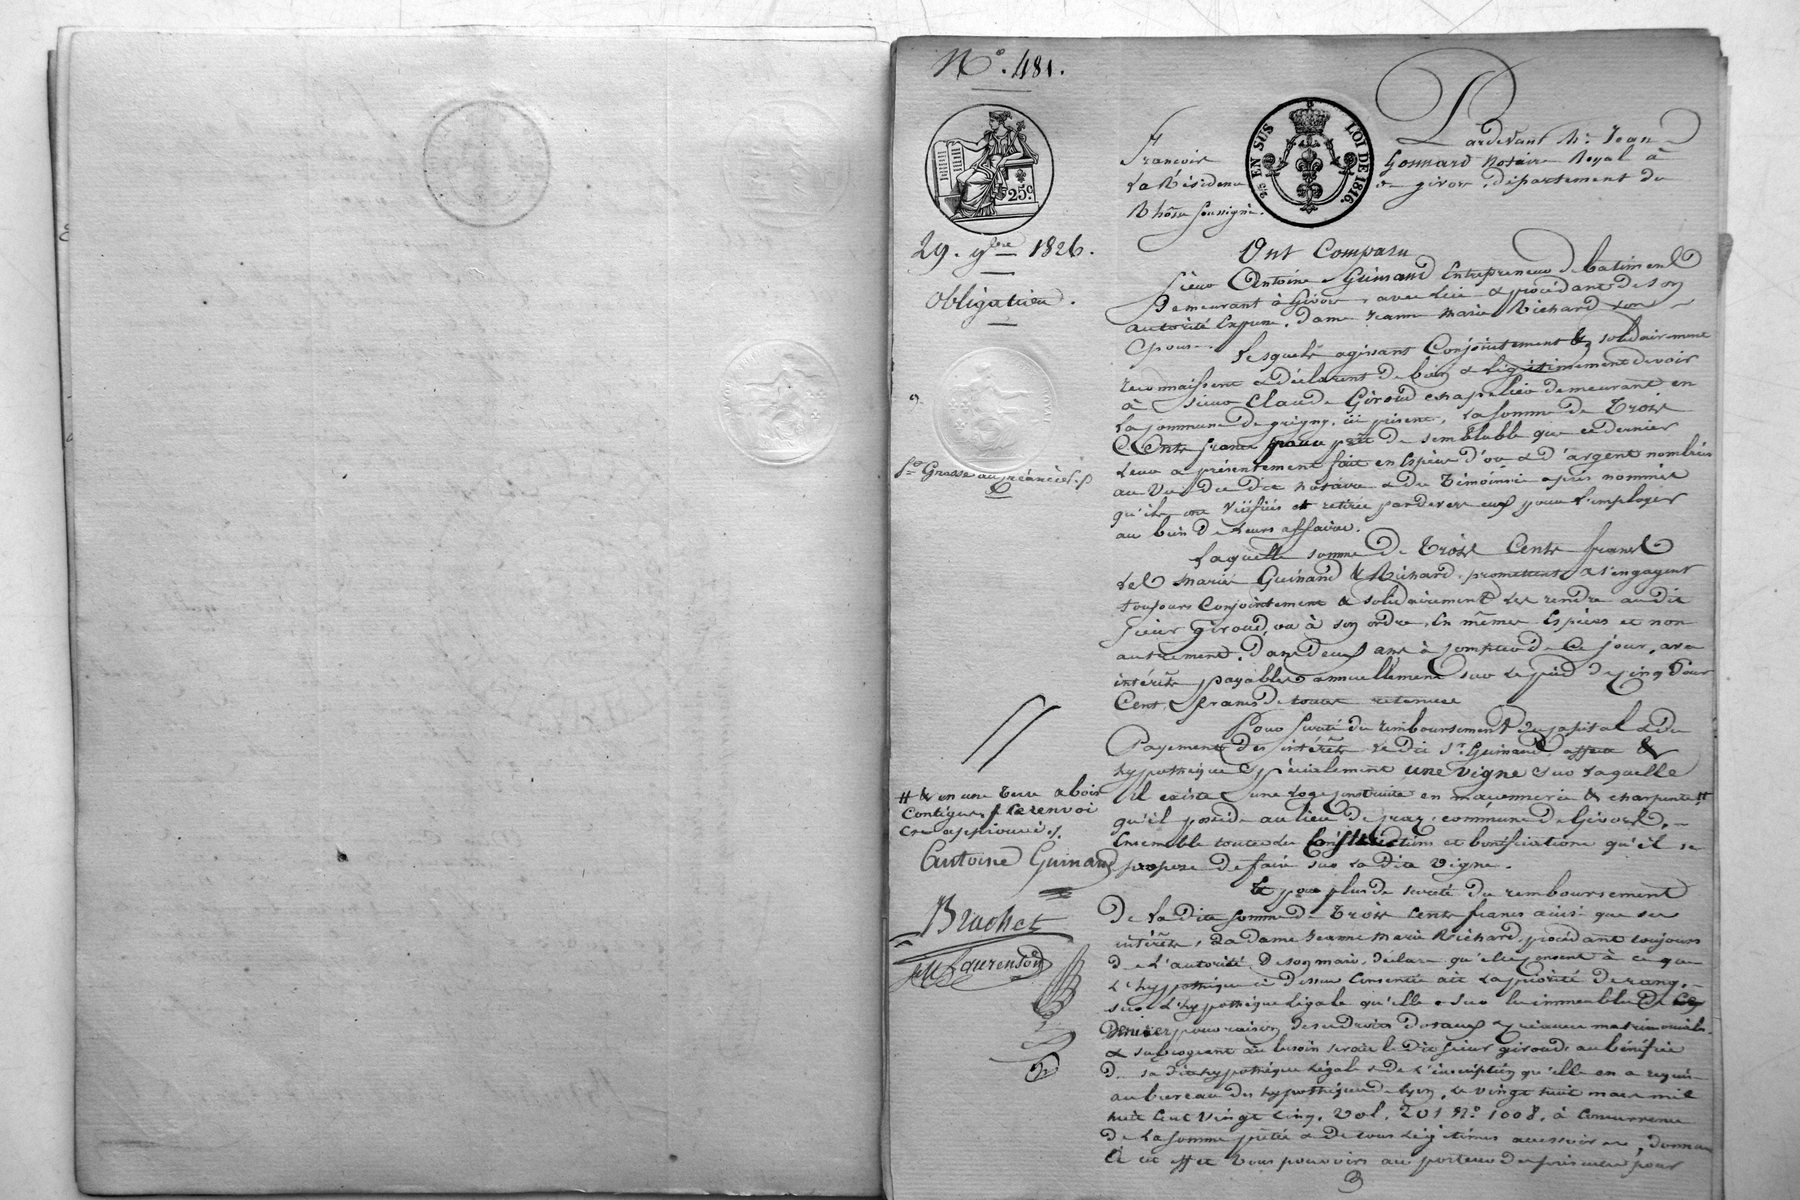 N° 481.
25 c.
25 EN SUS
LOI DE 1816.
29. 9bre 1826.
Obligation.
Grosse au créancier
Pardevant Me Jean
François Gonnard Notaire Royal à
La Résidence de givors département du
Rhône soussigné.
Ont Comparu
sieur Antoine Guinand Entrepreneur de batiment
Demeurant à Givors, avec lui & procédant de son
autorité Expresse, dame Jeanne Marie Richard son
Epouse.
Lesquels agissant Conjointement & solidairement
reconnaissent & déclarent de bien & légitimement devoir
à sieur Claude Giroud chapelier demeurant en
la commune de grigny, ici présent, la somme de Trois
Cents francs pour prêt de semblable que ce dernier
leur a présentement fait en Espèces d'or & d'argent nombrées
au Vu du dit Notaire & des Témoins ci après nommés
qu'ils ont vérifiés et retirés pardevers eux pour l'employer
au bien de leurs affaires.
Laquelle somme de Trois Cents francs
Les mariés Guinand & Richard, promettent & s'engagent
toujours Conjointement & solidairement de rendre au dit
sieur Giroud, ou à son ordre, En mêmes Espèces et non
autrement, dans deux ans à compter de Ce jour, avec
intérêts payables annuellement sur le pied de cinq pour
Cent, francs de toute retenue
Pour sureté du remboursement du capital & du
Payement des intérêts le dit Sr Guinand affecte &
hypothèque spécialement une vigne sur laquelle
il existe une loge construite en maçonnerie & charpente #
qu'il possède au lieu de commune de Givors,
Ensemble toutes les Constructions et bonifications qu'il se
propose de faire sur la dite vigne.
# & en une Terre & bois
Contigus, Le renvoi
approuvé
Antoine Guinand
Brachet
Laurenson
Et pour plus de sureté du remboursement
De la dite somme de Trois Cents francs ainsi que des
intérêts, la dame Jeanne Marie Richard, procédant toujours
de L'autorité de son mari, déclare qu'elle consent à ce que
L'hypothèque ci Dessus Consentie ait la priorité de rang,
sur L'hypothèque légale qu'elle a sur les immeubles de ce
Dernier pour raison de ses droits dotaux & créances matrimoniales
& subrogeant au besoin le dit sieur giroud, au bénéfice
de sa dite hypothèque légale & de L'inscription qu'elle en a requise
au bureau des hypothèques de Lyon, le vingt huit mars mil
huit Cent Vingt Cinq, Vol. 201 N° 1008, à Concurrence
De la somme prêtée & de tous légitimes accessoires, donnant
à cet effet tous pouvoirs au porteur des présentes pour